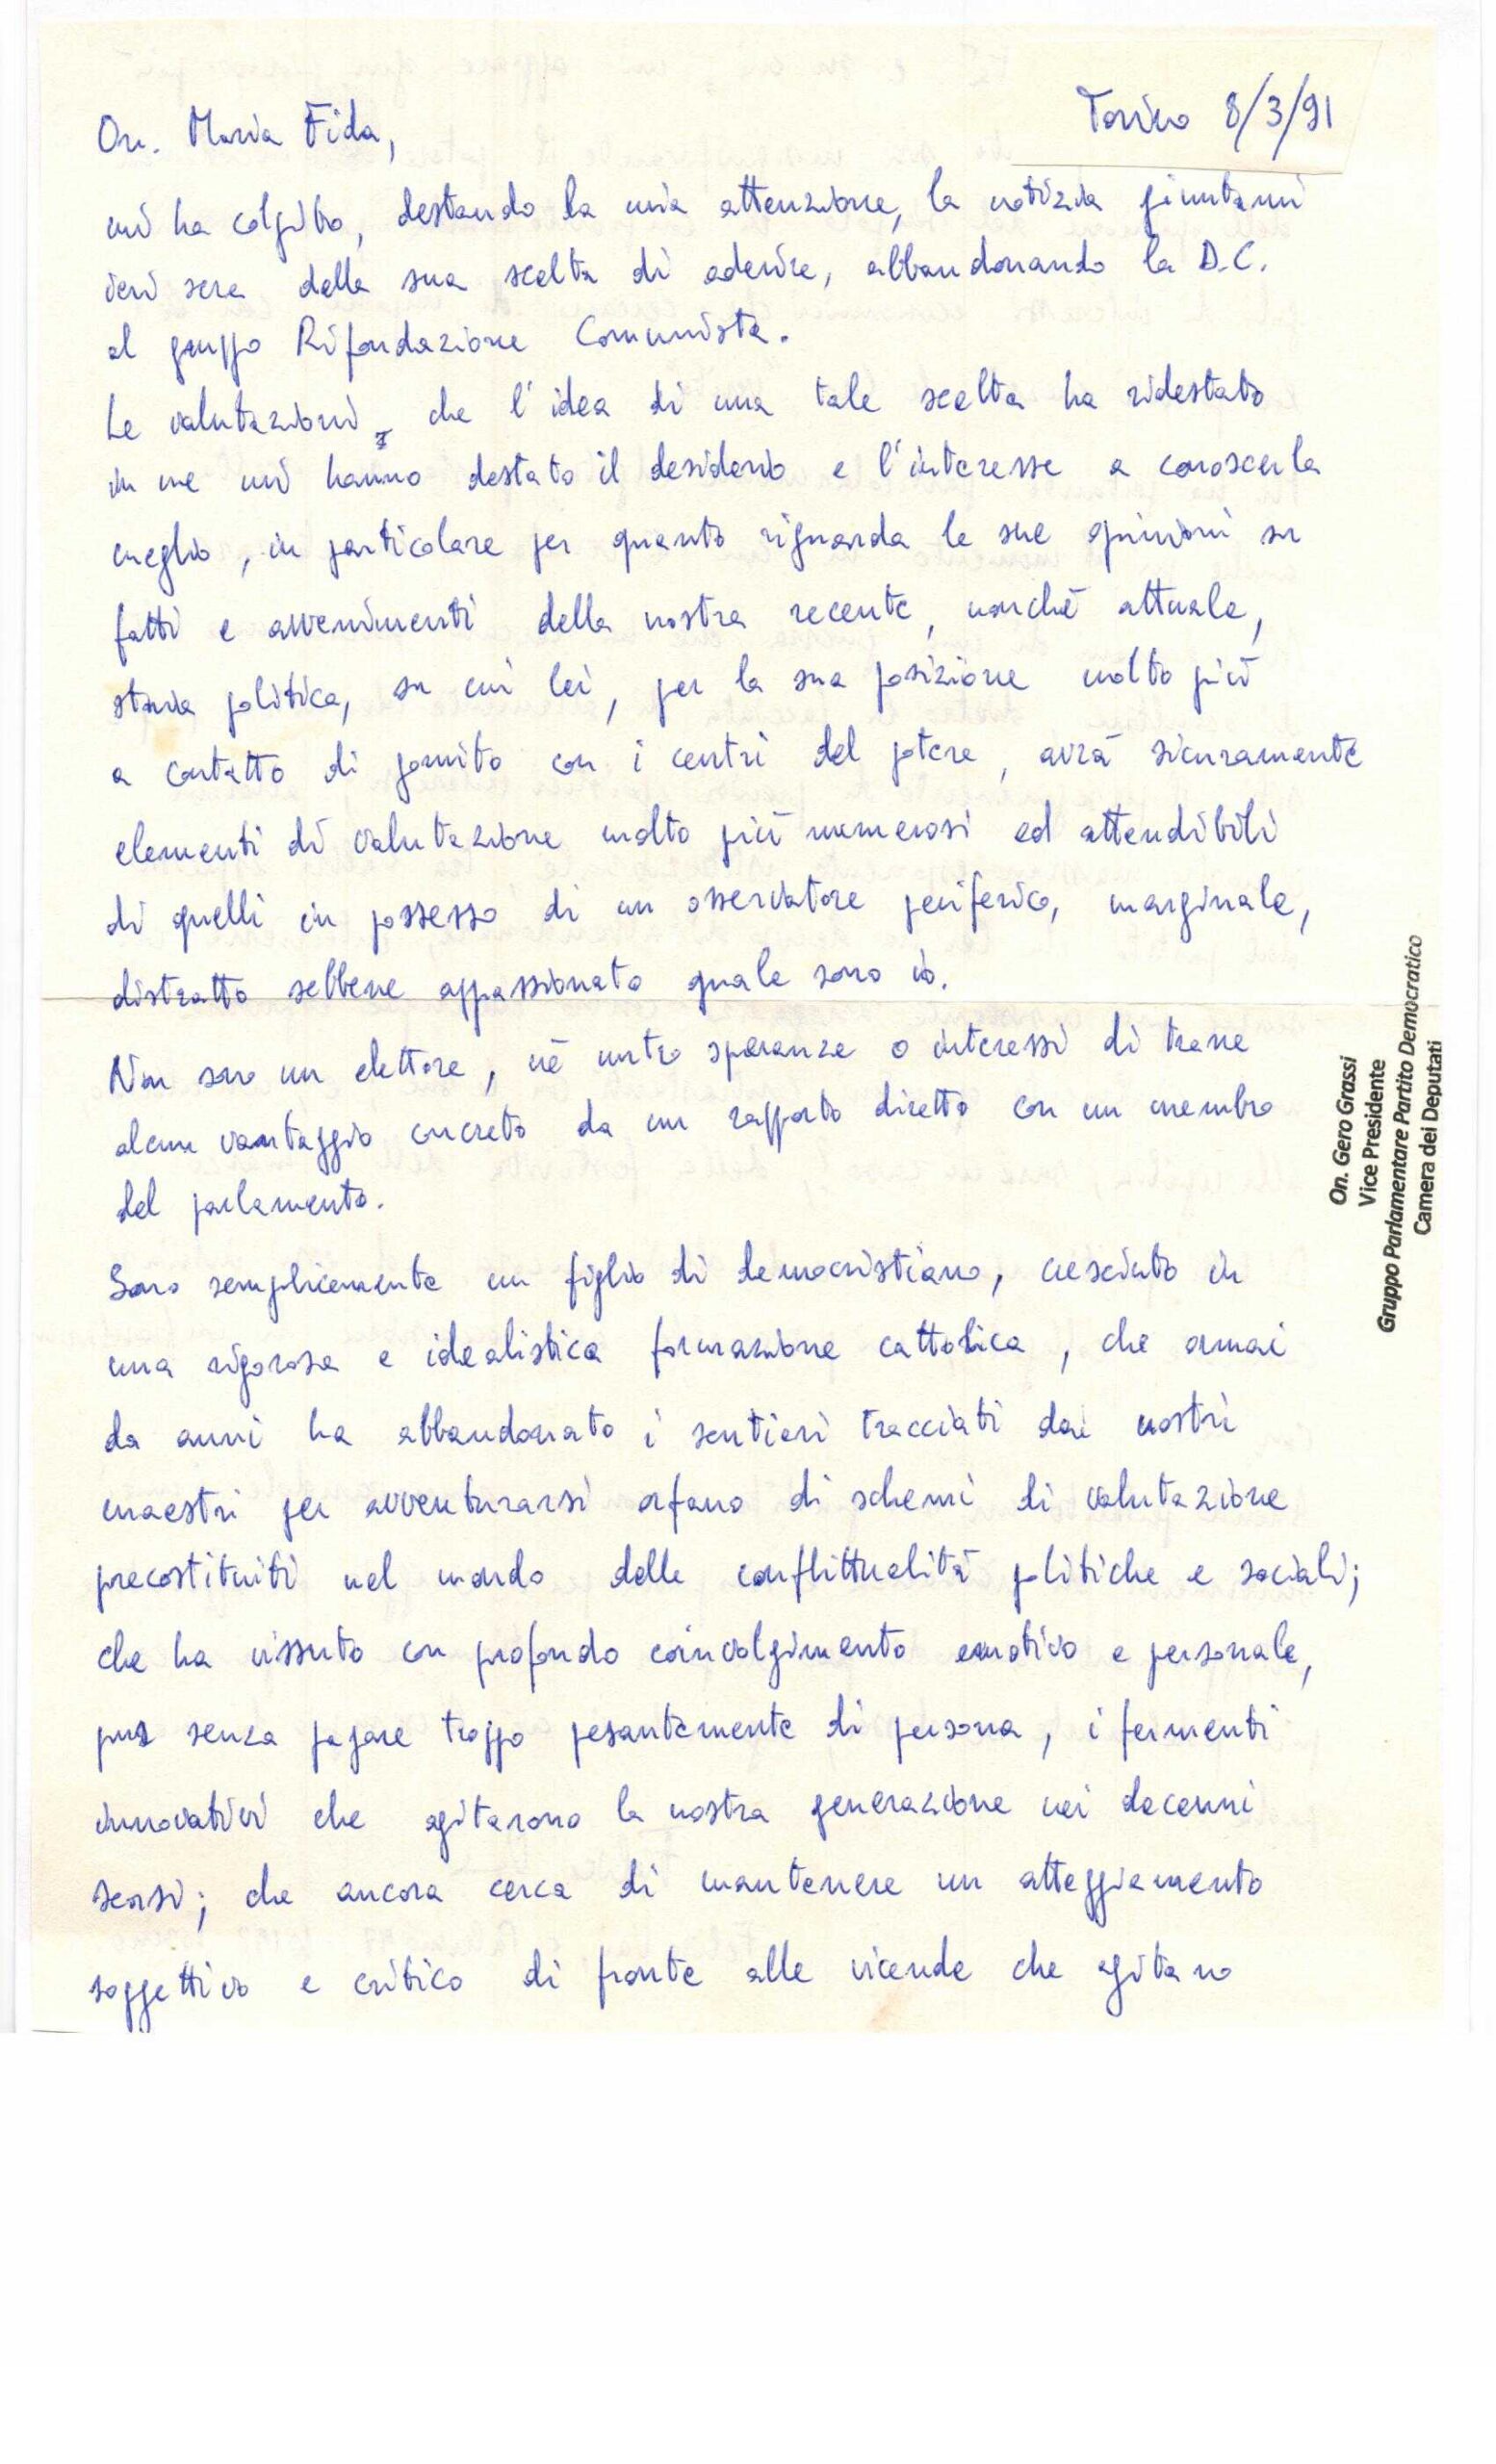 Torino 8/3/91
On. Maria Fida,
mi ha colpito, destando la mia attenzione, la notizia giuntami
ieri sera della sua scelta di aderire, abbandonando la D.C.
al gruppo Rifondazione Comunista.
Le valutazioni, che l'idea di una tale scelta ha ridestato
in me mi hanno destato il desiderio e l'interesse a conoscerla
meglio, in particolare per quanto riguarda le sue opinioni su
fatti e avvenimenti della nostra recente, nonchè attuale,
storia politica, su cui lei, per la sua posizione molto più
a contatto di gomito con i centri del potere, avrà sicuramente
elementi di valutazione molto più numerosi ed attendibili
di quelli in possesso di un osservatore periferico, marginale,
distratto sebbene appassionato quale sono io.
Non sono un elettore, nè nutro speranze o interessi di trarre
alcun vantaggio concreto da un rapporto diretto con un membro
del parlamento.
Sono semplicemente un figlio di democristiano, cresciuto in
una rigorosa e idealistica formazione cattolica, che ormai
da anni ha abbandonato i sentieri tracciati dai nostri
maestri per avventurarsi orfano di schemi di valutazione
precostituiti nel mondo delle conflittualità politiche e sociali;
che ha vissuto con profondo coinvolgimento emotivo e personale,
pur senza pagare troppo pesantemente di persona, i fermenti
innovativi che agitarono la nostra generazione nei decenni
scorsi; che ancora cerca di mantenere un atteggiamento
soggettivo e critico di fronte alle vicende che agitano
On. Gero Grassi
Vice Presidente
Gruppo Parlamentare Partito Democratico
Camera dei Deputati